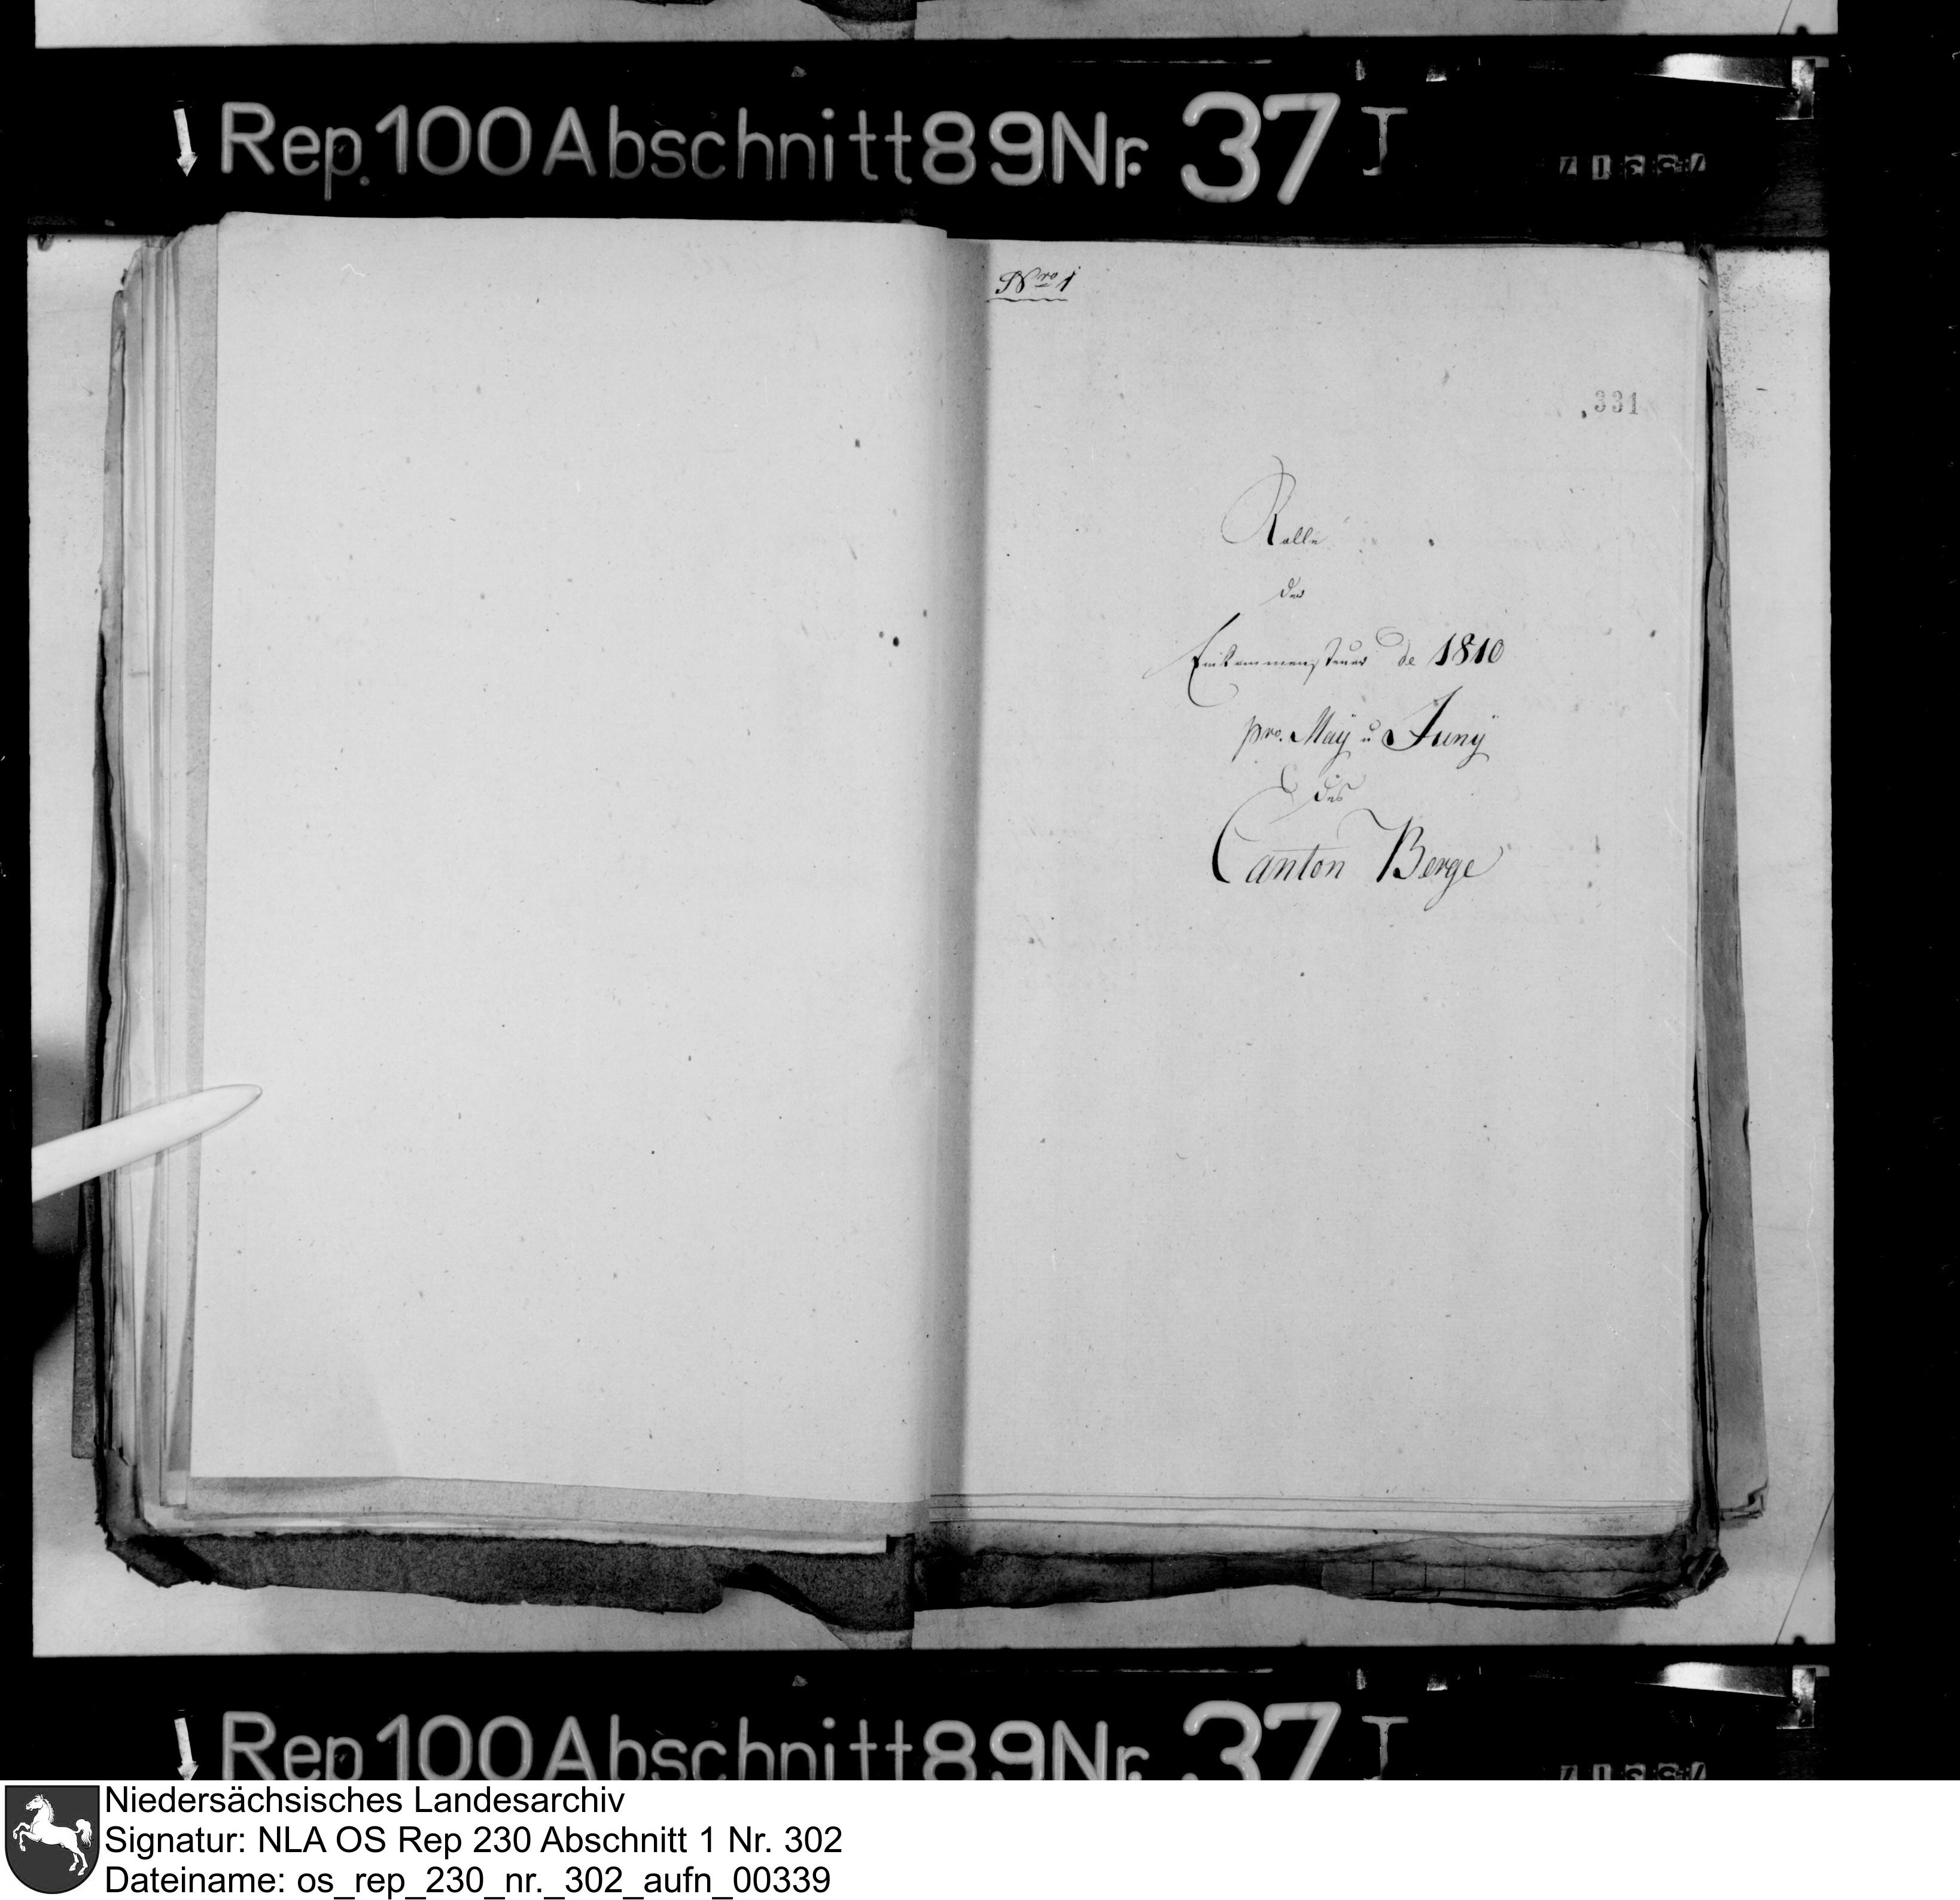 Rep. 100 Abschnitt 89 Nr. 37 I
Nro 1
331
Rolle
der
Einkommensteuer de 1810
pro. Maÿ u Junÿ
des
Canton Berge
Rep. 100 Abschnitt 89 Nr. 37 I
Niedersächsisches Landesarchiv
Signatur: NLA OS Rep 230 Abschnitt 1 Nr. 302
Dateiname: os_rep_230_nr._302_aufn_00339